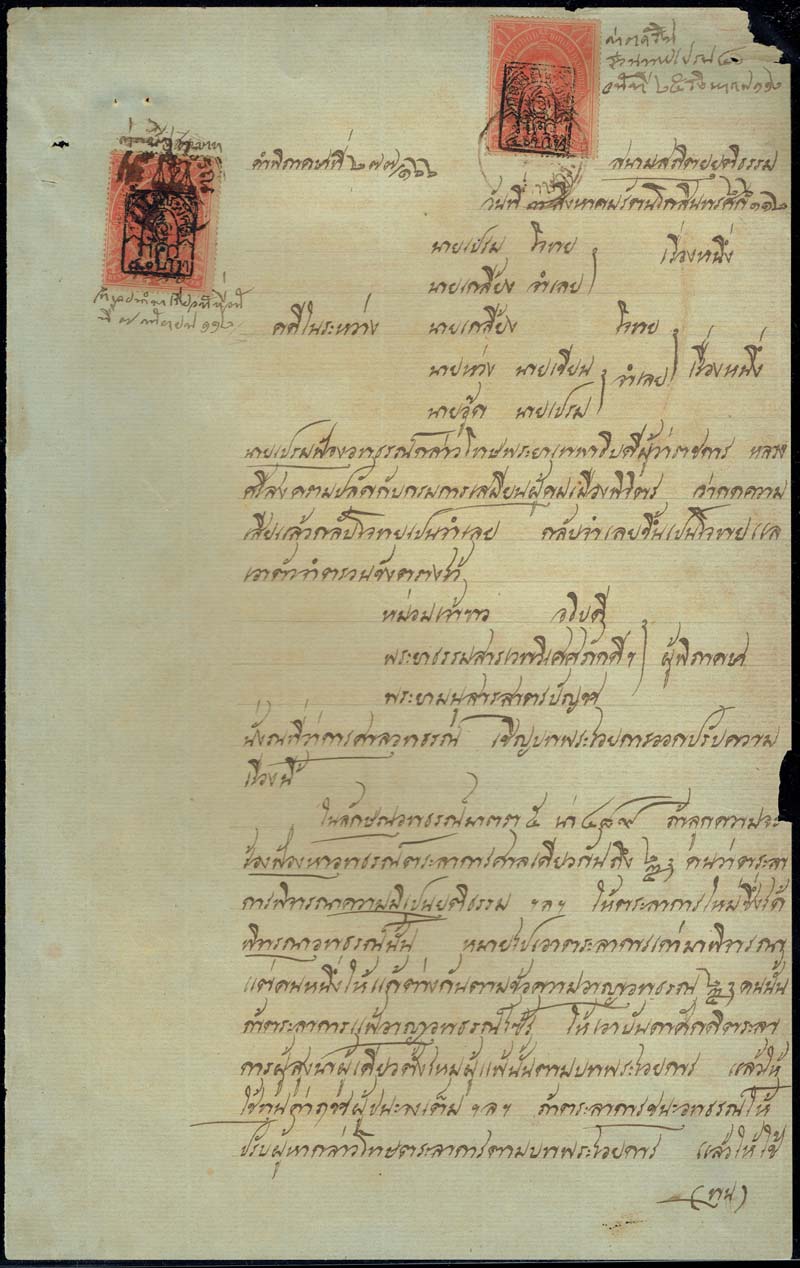 คำพิภาคษที่ ๒๗๗/๑๒๒
สนามสถิตยยุติธรรม
วันที่ ๓ สิงหาคม รัตนโกสินทรศก๊ ๑๑๒
นายเปรม โจทย
นายเกลี้ยง จำเลย
เรื่องหนึ่ง
คดีในระหว่าง นายเกลี้ยง โจทย
นายห่วง นายเขียน
นายจุ้ด นายเปรม
จำเลย
เรื่องหนึ่ง
นายเปรมฟ้องอุทธรณ์กล่าวโทษพระยาเทพาธิบดีผู้ว่าราชการ หลวง
ศรีสงครามปลัดกับกรมการเสมียนผู้คุมเมืองพิจิตร ว่ากดความ
เสียแล้วกลับโจทยเปนจำเลย กลับจำเลยขึ้นเปนโจทย แล
เอาตัวจำตรวนขังตรางไว้
หม่อมเจ้าขาว อธิบดี
พระยาธรรมสารเวทวิเศศภักดีฯ
พระยามนูสารสาตรบัญชา
ผู้พิภาคษ
นั่งณที่ว่าการศาลอุทธรณ์ เชิญบทพระอัยการออกปรับความ
เรื่องนี้
ในลักษณอุทธรณ์มาตรา ๕ น่า ๔๘๙ ถ้าลูกความจะ
ร้องฟ้องหาอุทธรณ์ตระลาการศาลเดียวกันถึง ๒ ๓ คนว่าตระลา
การพิจารณาความมิเปนยุติธรรม ฯลฯ ให้ตระลาการใหม่ซึ่งได้
พิจารณาอุทธรณ์นั้น หมายไปเอาตระลาการเก่ามาพิจารณา
แต่คนหนึ่งให้แก้ต่างกันตามข้อความอาญาอุทธรณ์ ๒ ๓ คนนั้น
ถ้าตระลาการแพ้อาญาอุทธรณ์ไซ้ร้ ให้เอาบันดาศักดิตระลา
การผู้สูงนาผู้เดียวตั้งไหมผู้แพ้นั้นตามบทพระอัยการ แล้วให้
ใช้ทุนค่าฤชาผู้ชนะจงเต็ม ฯลฯ ถ้าตระลาการชนะอุทธรณ์ให้
ปรับผู้หากล่าวโทษตระลาการตามบทพระอัยการ แล้วให้ใช้
(ทุน)